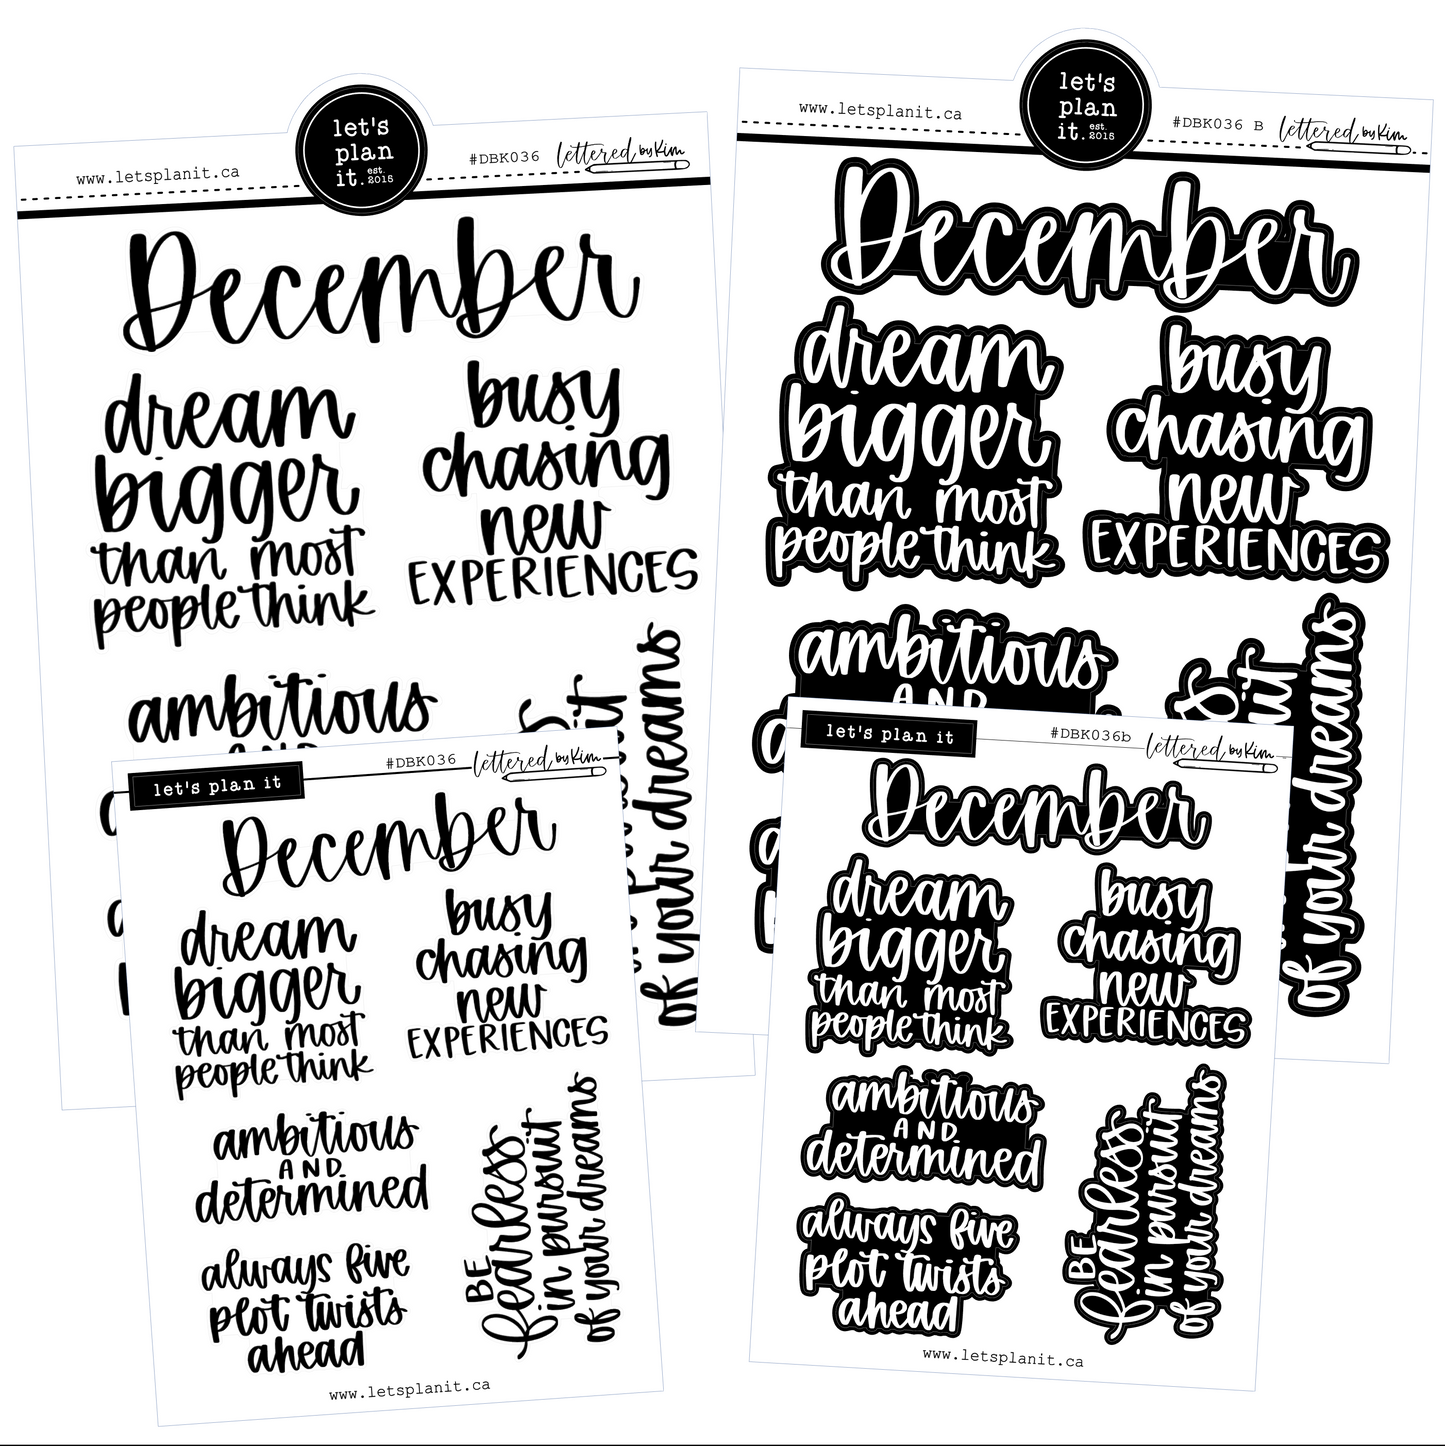 www.letsplanit.ca
let's
plan
it. est. 2015
#DBK036
lettered by Kim
December
dream
bigger
than most
people think
busy
chasing
new
EXPERIENCES
ambitious
AND
of your dreams
www.letsplanit.ca
let's
plan
it. est. 2015
#DBK036 B
lettered by Kim
December
dream
bigger
than most
people think
busy
chasing
new
EXPERIENCES
ambitious
AND
of your dreams
let's plan it
#DBK036
lettered by Kim
December
dream
bigger
than most
people think
busy
chasing
new
EXPERIENCES
ambitious
AND
determined
always five
plot twists
ahead
BE
fearless
in pursuit
of your dreams
www.letsplanit.ca
let's plan it
#DBK036b
lettered by Kim
December
dream
bigger
than most
people think
busy
chasing
new
EXPERIENCES
ambitious
AND
determined
always five
plot twists
ahead
BE
fearless
in pursuit
of your dreams
www.letsplanit.ca